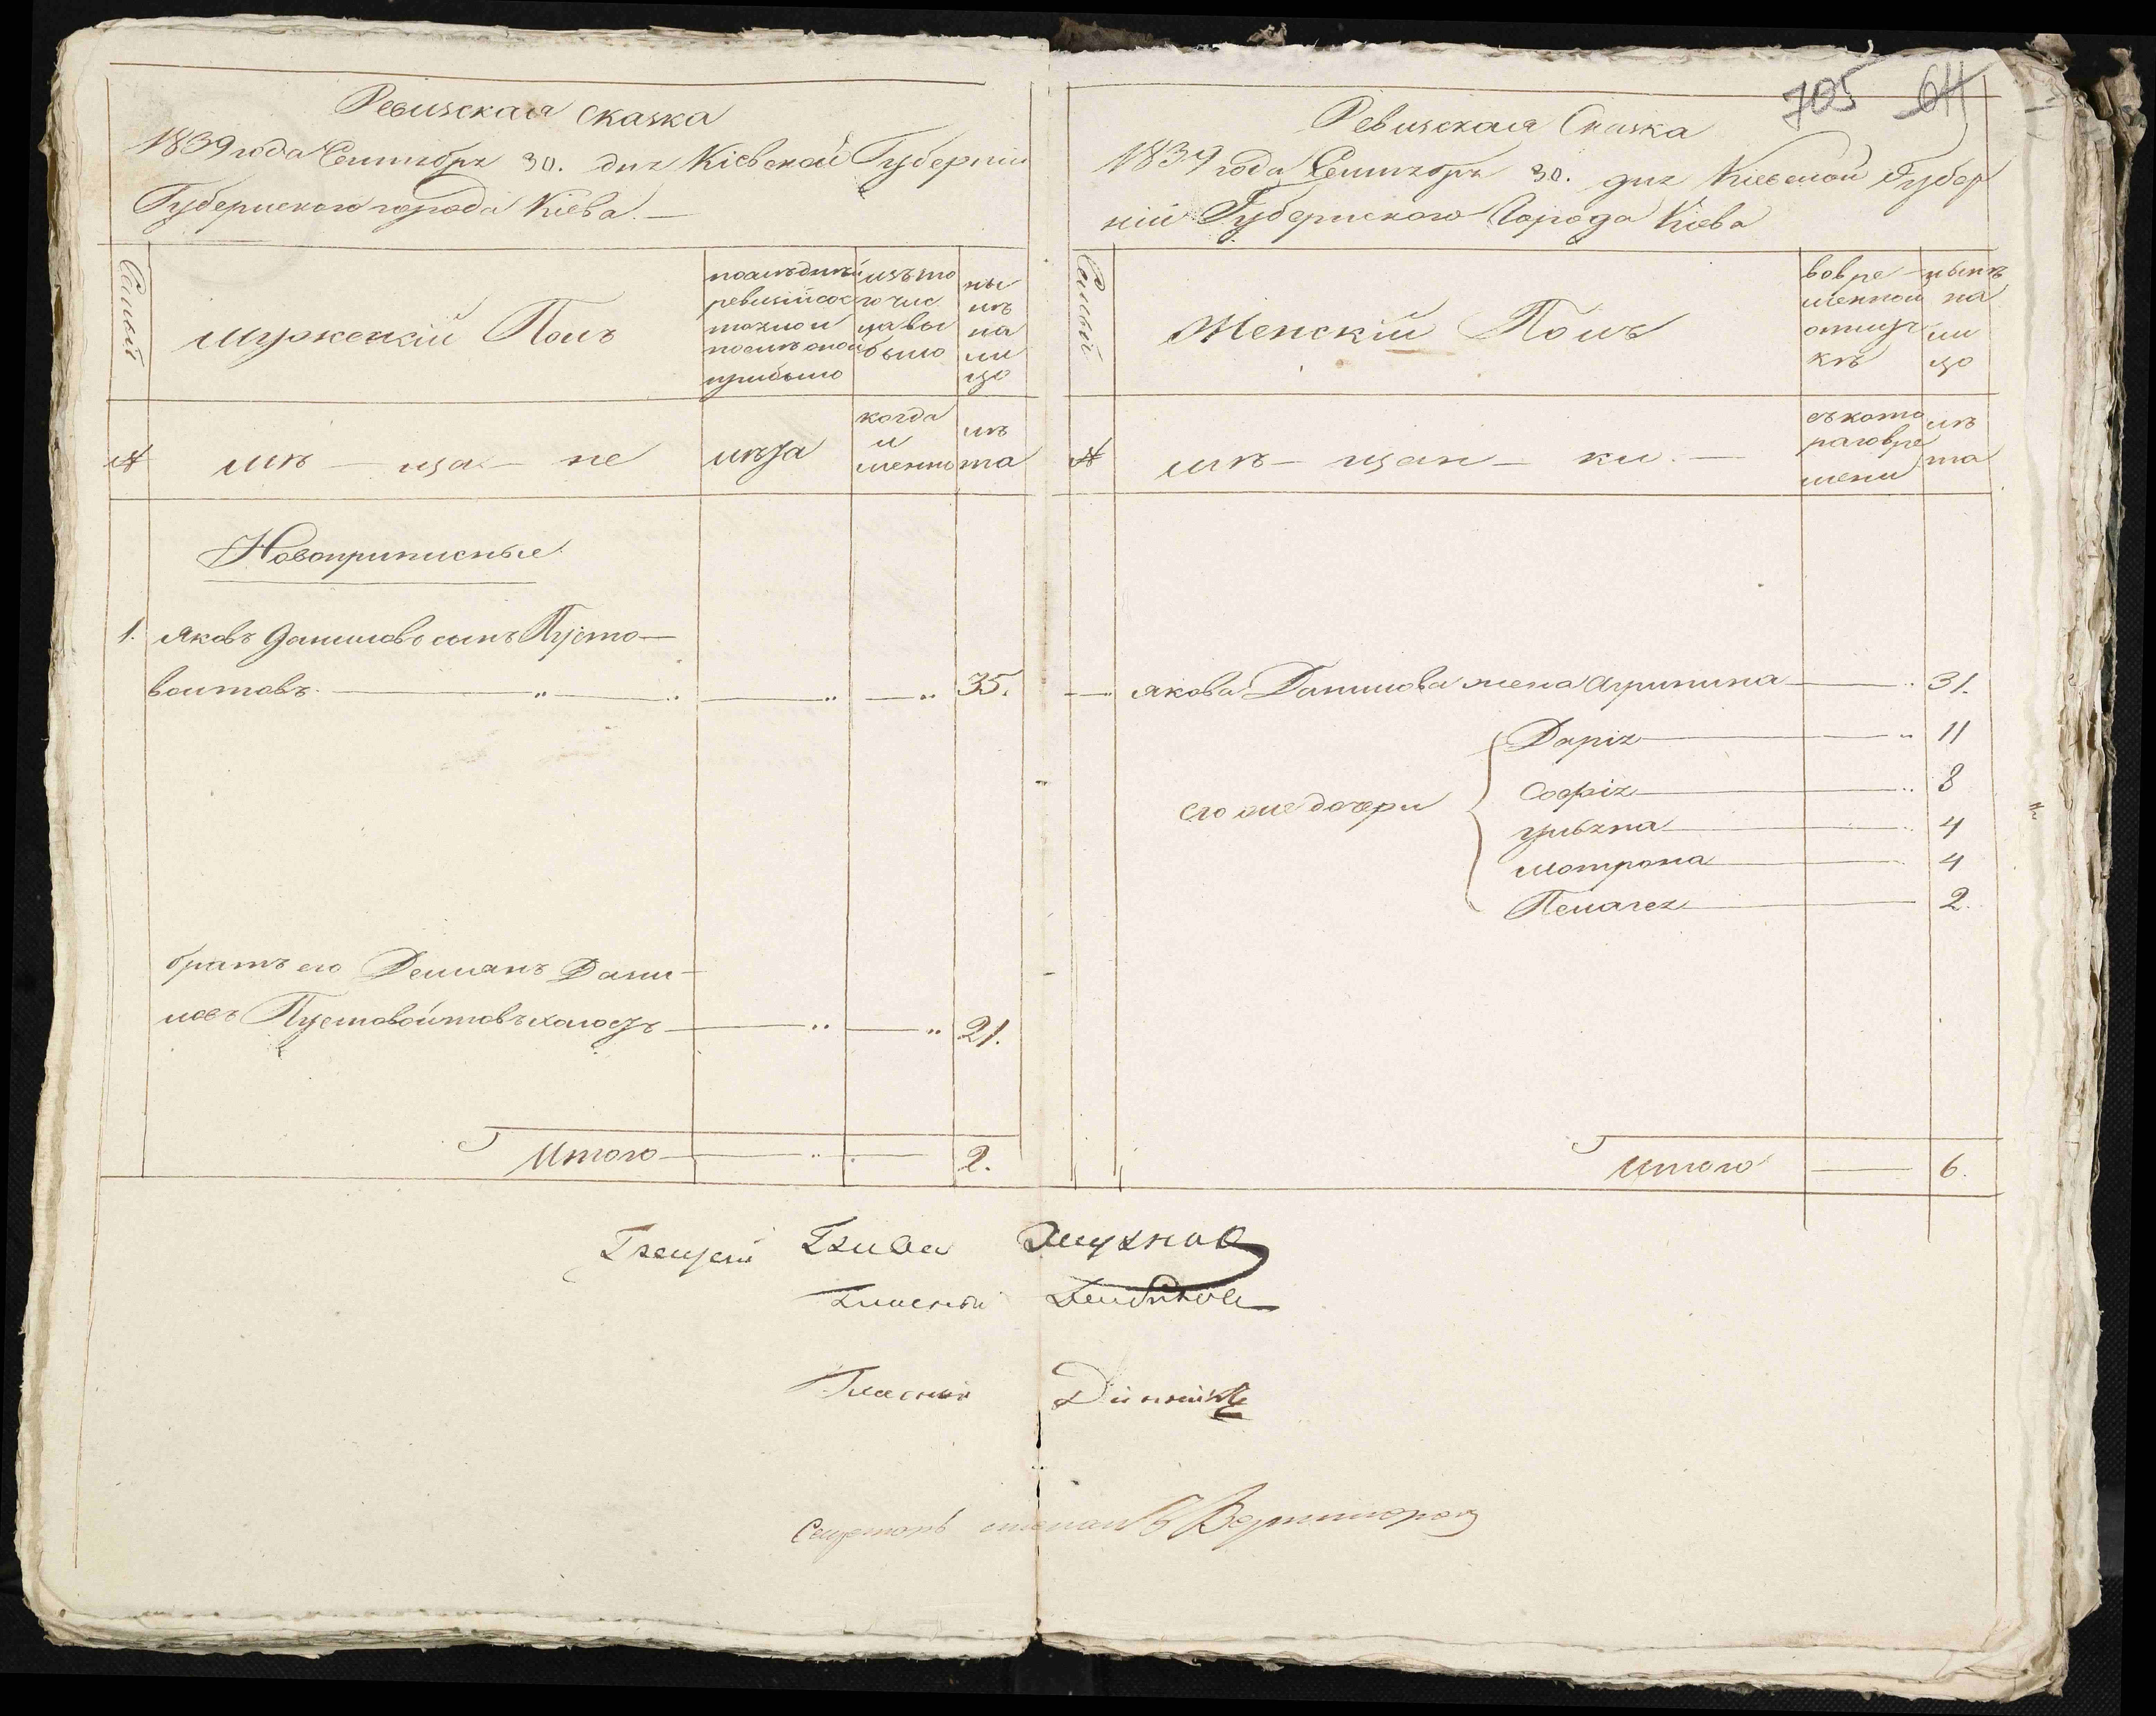 Ревизская сказка
1839 года Сентября 30. дня Кіевской Губерніи
Губернскаго города Кіева. —
Семьи
мужескій Полъ
последней
ревизіи сос
тояло и
после оной
прибыло
изъ то
го чис
ла вы
было
ны
не
на
ли
цо
№
ме — ща — не
лета
когда
и
менно
ле
та
Новоприписные
1. Яковъ Даниловъ сынъ Пусто—
воитовъ. 35.
братъ его Демианъ Дани—
ловъ Пустовойтовъ холостъ 21.
Итого 2.
705 64
Ревизская Сказка
1839 года Сентября 30. дня Киевской Губер
ніи Губернского Города Киева
Семьи
Женскій Полъ
вовре
менной
отлуч
кѣ
нынѣ
на
ли
цо
№
мѣ — щан — ки. —
съ кото
раго вре
мени
лѣ
та
Якова Данилова жена Агрипина 31.
его же дочери
Дарія 11
Софія 8
Ульяна 4
Мотрона 4
Пелагея 2.
Итого 6.
Глава
Гласный
Гласный
Секретарь